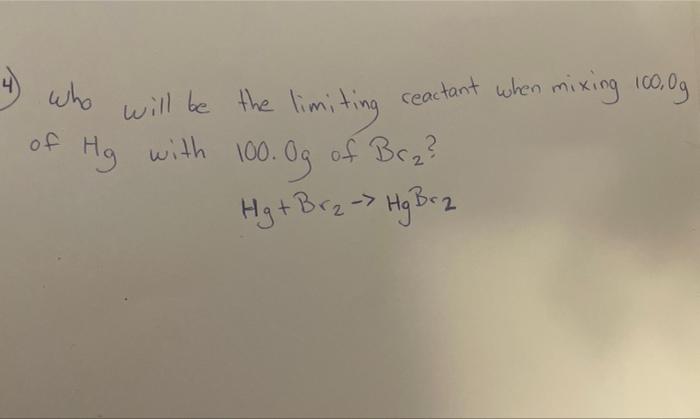 4) who will be the limiting reactant when mixing 100.0g
of Hg with 100.0g of Br2?
Hg + Br2 -> HgBr2